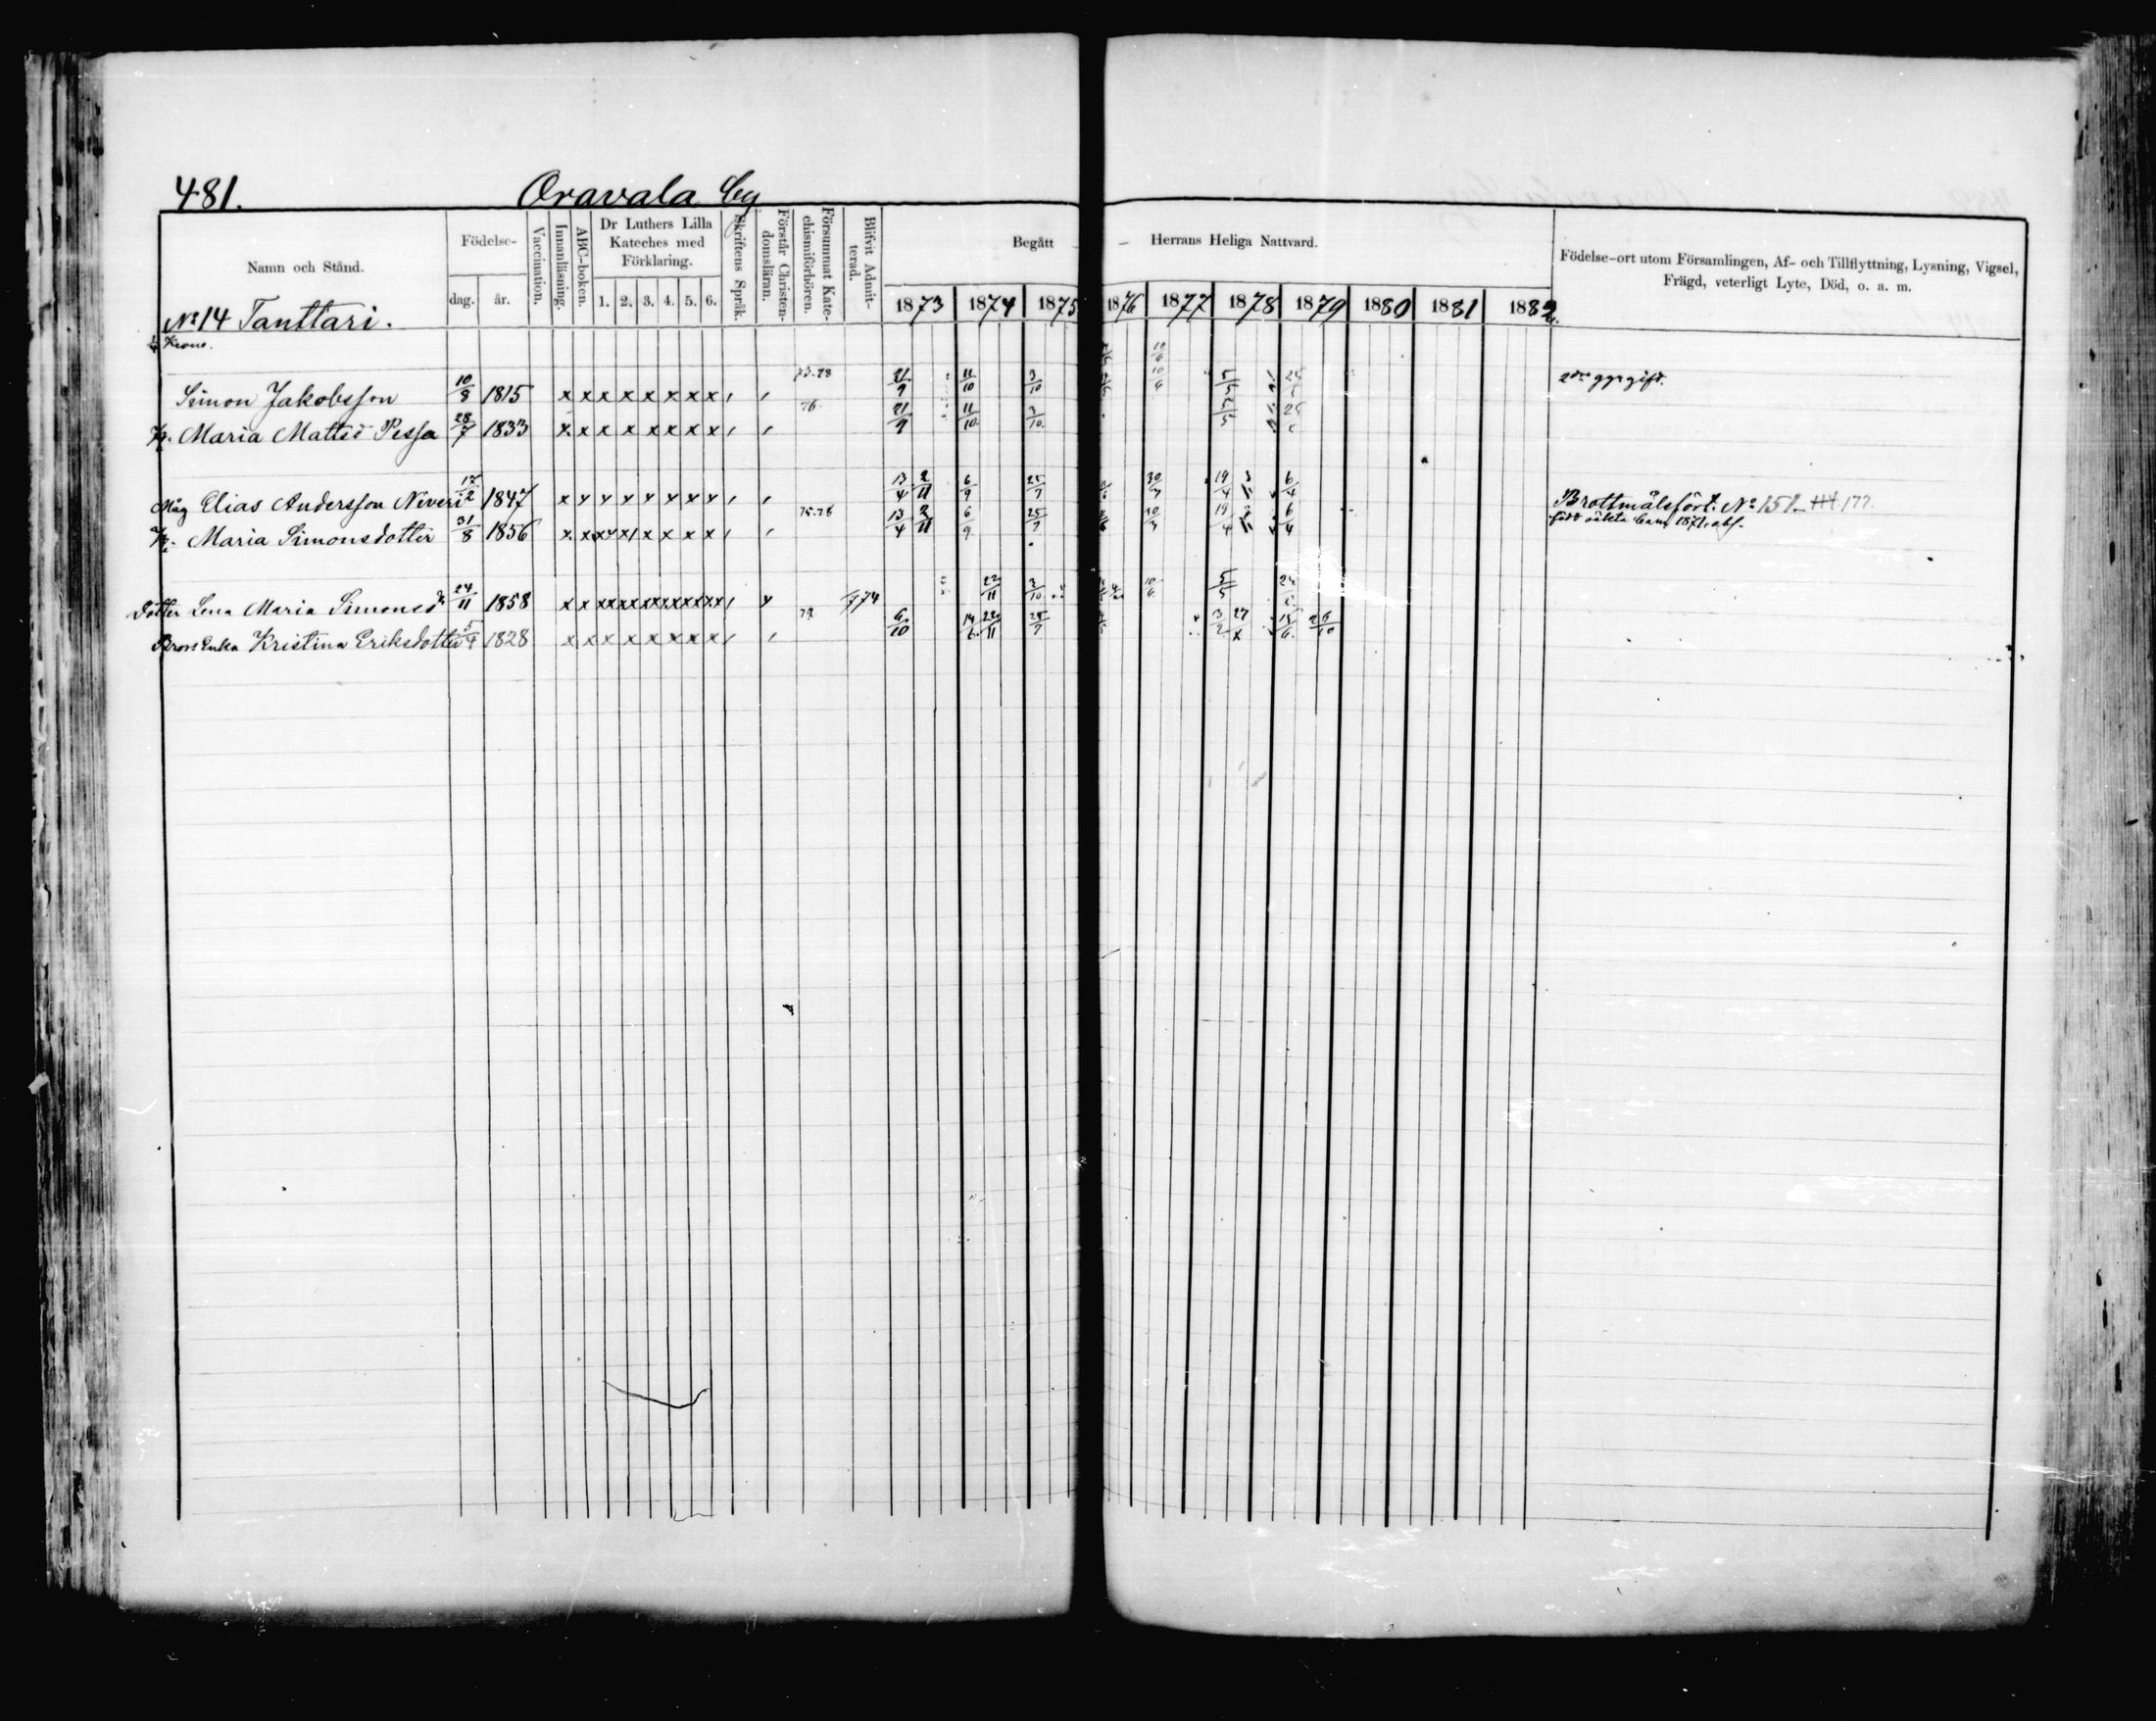 481. Oravala by
Namn och Stånd.
Födelse-
dag. år.
Vaccination.
Innanläsning.
ABC-boken.
Dr Luthers Lilla
Kateches med
Förklaring.
1. 2. 3. 4. 5. 6.
Skriftens Språk.
Förstår Christen-
domsläran.
Försummat Kate-
chismiförhören.
Blifvit Admit-
terad.
Begått – Herrans Heliga Nattvard.
1873 1874 1875 1876 1877 1878 1879 1880 1881 1882.
Födelse-ort utom Församlingen, Af- och Tillflyttning, Lysning, Vigsel,
Frägd, veterligt Lyte, Död, o. a. m.
No 14 Tanttari.
Krono.
Simon Jakobsson 10/8 1815 x x x x x x x x 21/9 11/10 3/10 10/6 5/5 2dra ggr gift.
H. Maria Mattsd Pessa 28/7 1833 x x x x x x x x 76 21/9 11/10 3/10 5/5
Måg Elias Andersson Niveri 17/2 1847 x x x x x x x x 13/4 2/11 6/9 25/7 30/7 19/4 6/4 Brottmålsfört. No 151. 177.
H. Maria Simonsdotter 31/8 1856 x x x x x x x x 13/4 2/11 6/9 25/7 30/7 19/4 6/4 född oäkta barn 1871. abs.
Dotter Lena Maria Simonsdr 24/11 1858 x x x x x x x x 74 22/11 3/10 10/6 5/5
Brors Enka Kristina Eriksdotter 5/4 1828 x x x x x x x x 6/10 22/11 25/7 3/2 15/6 26/10